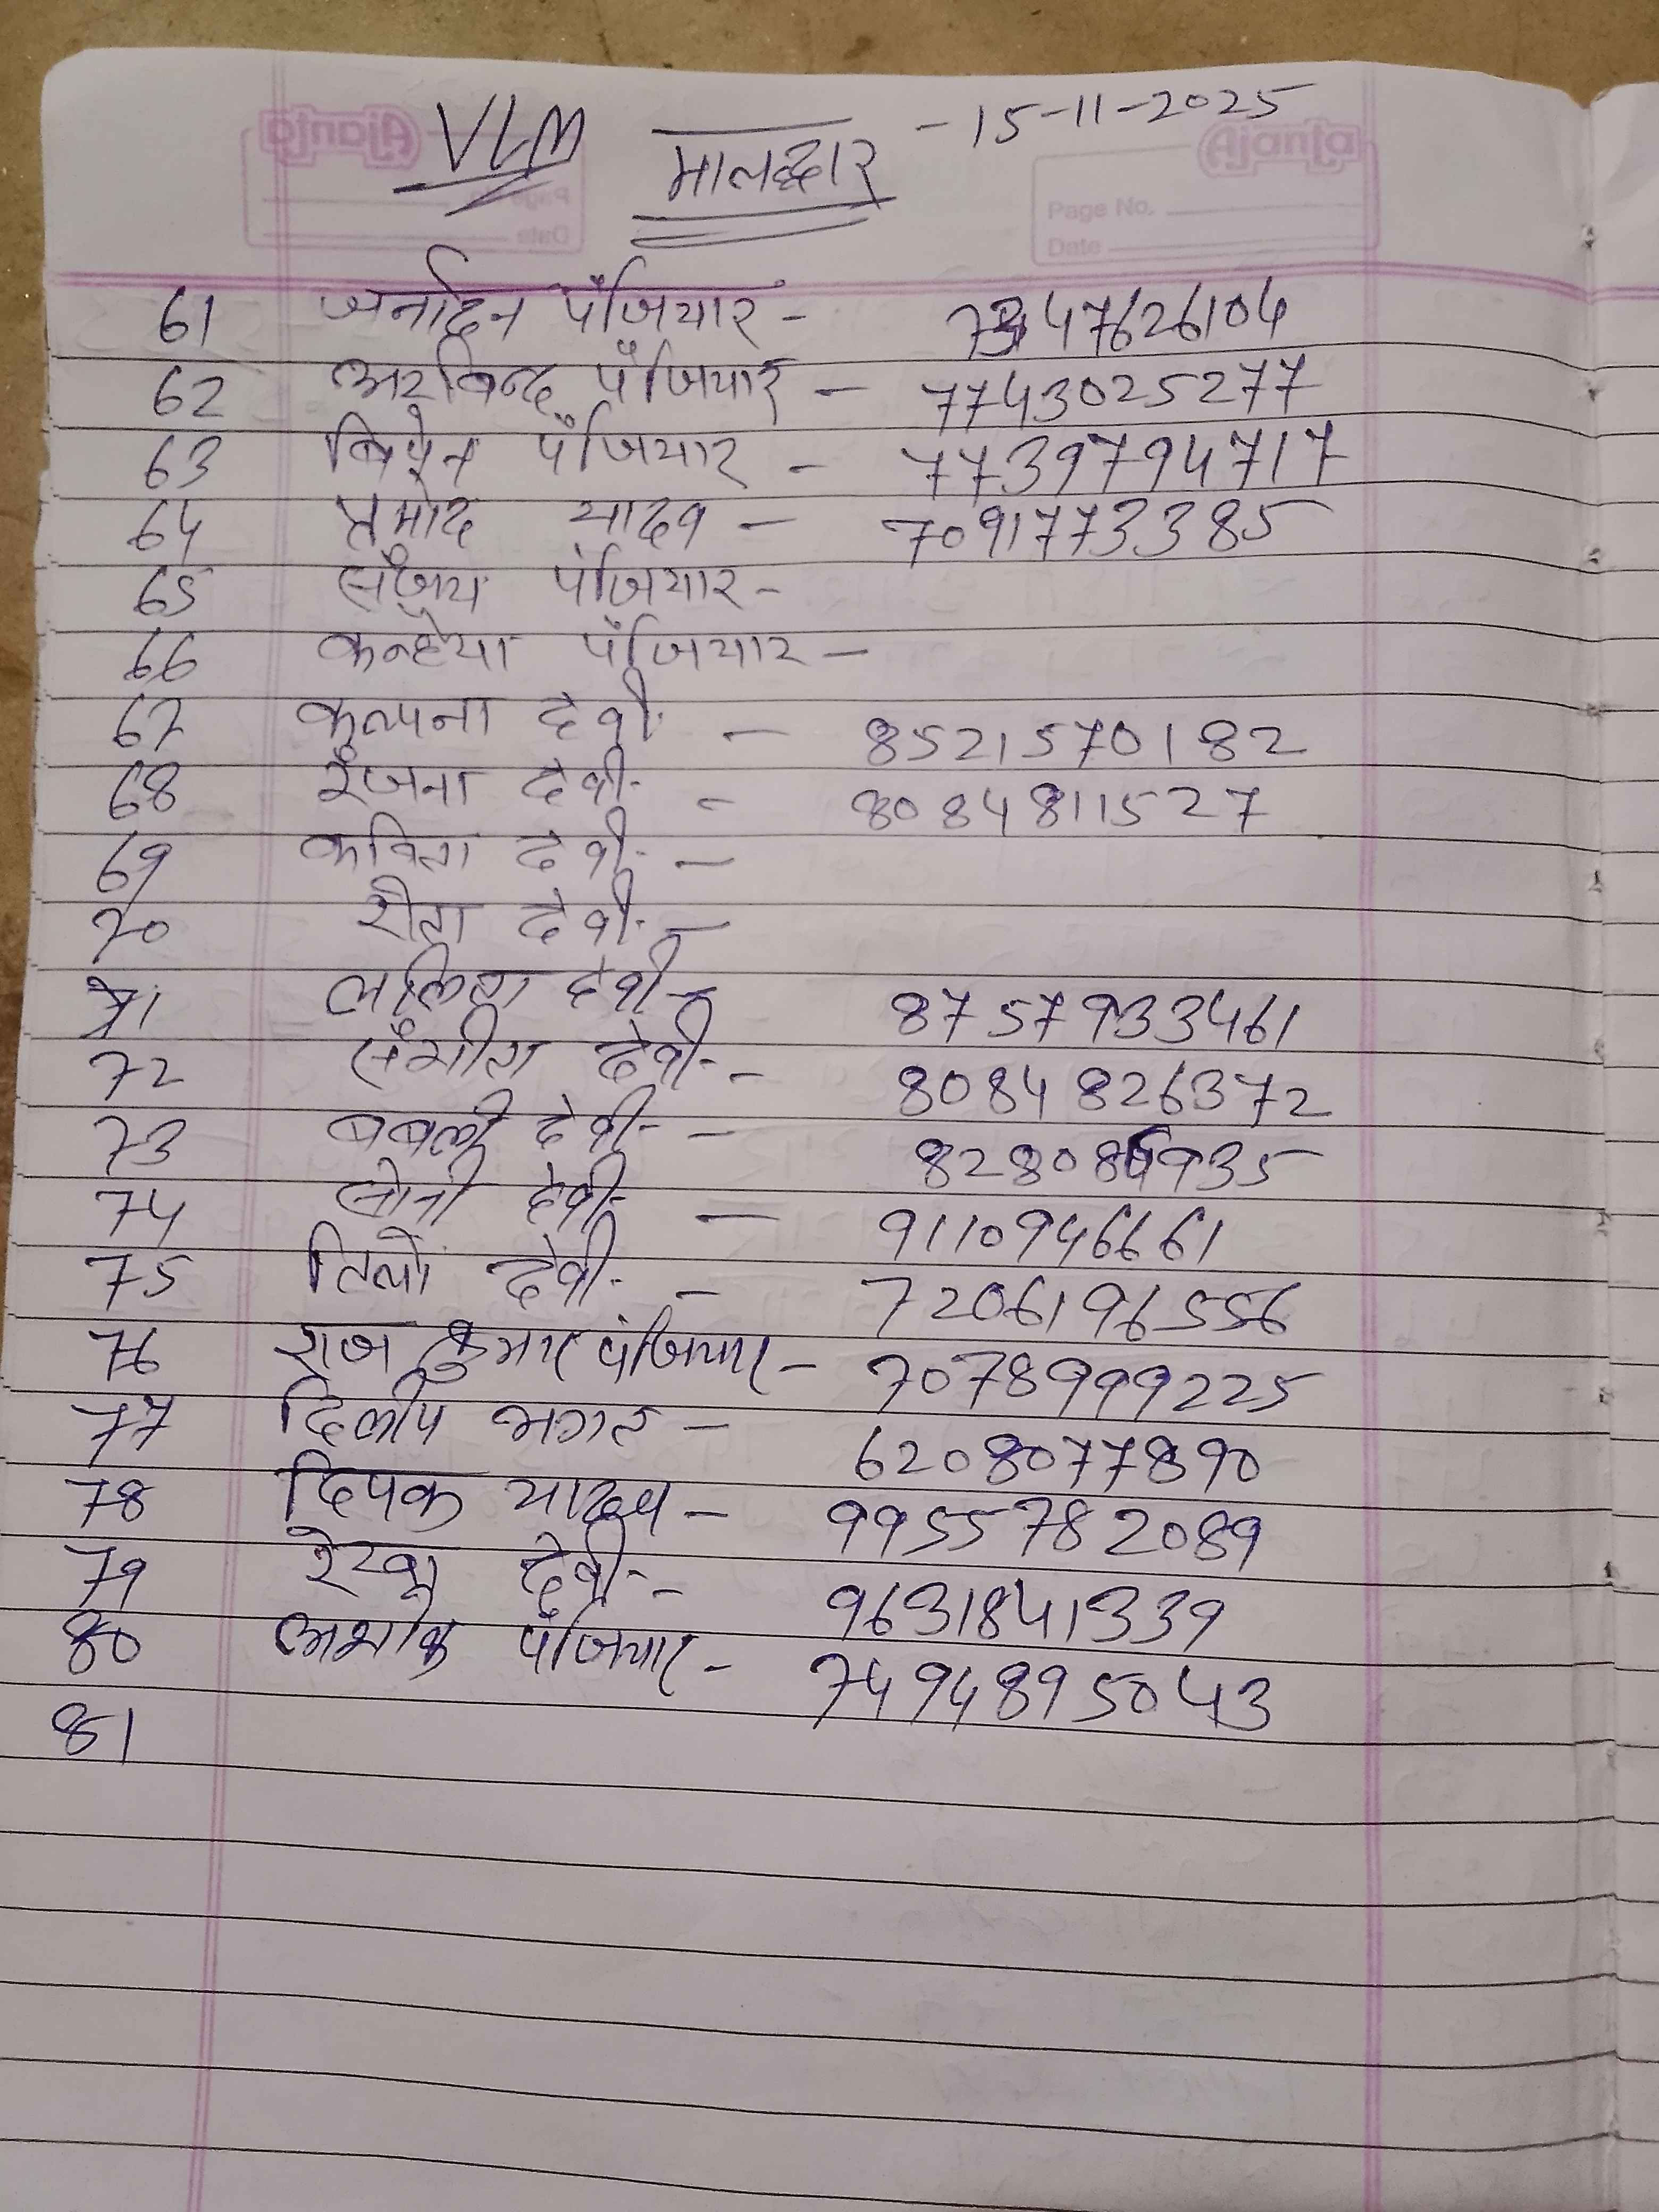 VLM मालद्वार - 15-11-2025
Ajanta
Page No.
Date
61 जर्नादन पंजियार - 7347626104
62 अरविन्द पंजियार - 7743025277
63 विपेन पंजियार - 7739794717
64 प्रमोद यादव - 7091773385
65 संजय पंजियार -
66 कन्हैया पंजियार -
67 कल्पना देवी - 8521570182
68 रंजना देवी - 8084811527
69 कविता देवी -
70 रीता देवी -
71 ललिता देवी - 8757933461
72 संगीता देवी - 8084826372
73 बबली देवी - 82808 935
74 सोनी देवी - 9110946661
75 देवी - 7206196556
76 राज कुमार पंजियार - 7078999225
77 दिलीप भगत - 6208077890
78 दिपक यादव - 9955782089
79 रेखा देवी - 9631841339
80 अशोक पंजियार - 7494895043
81